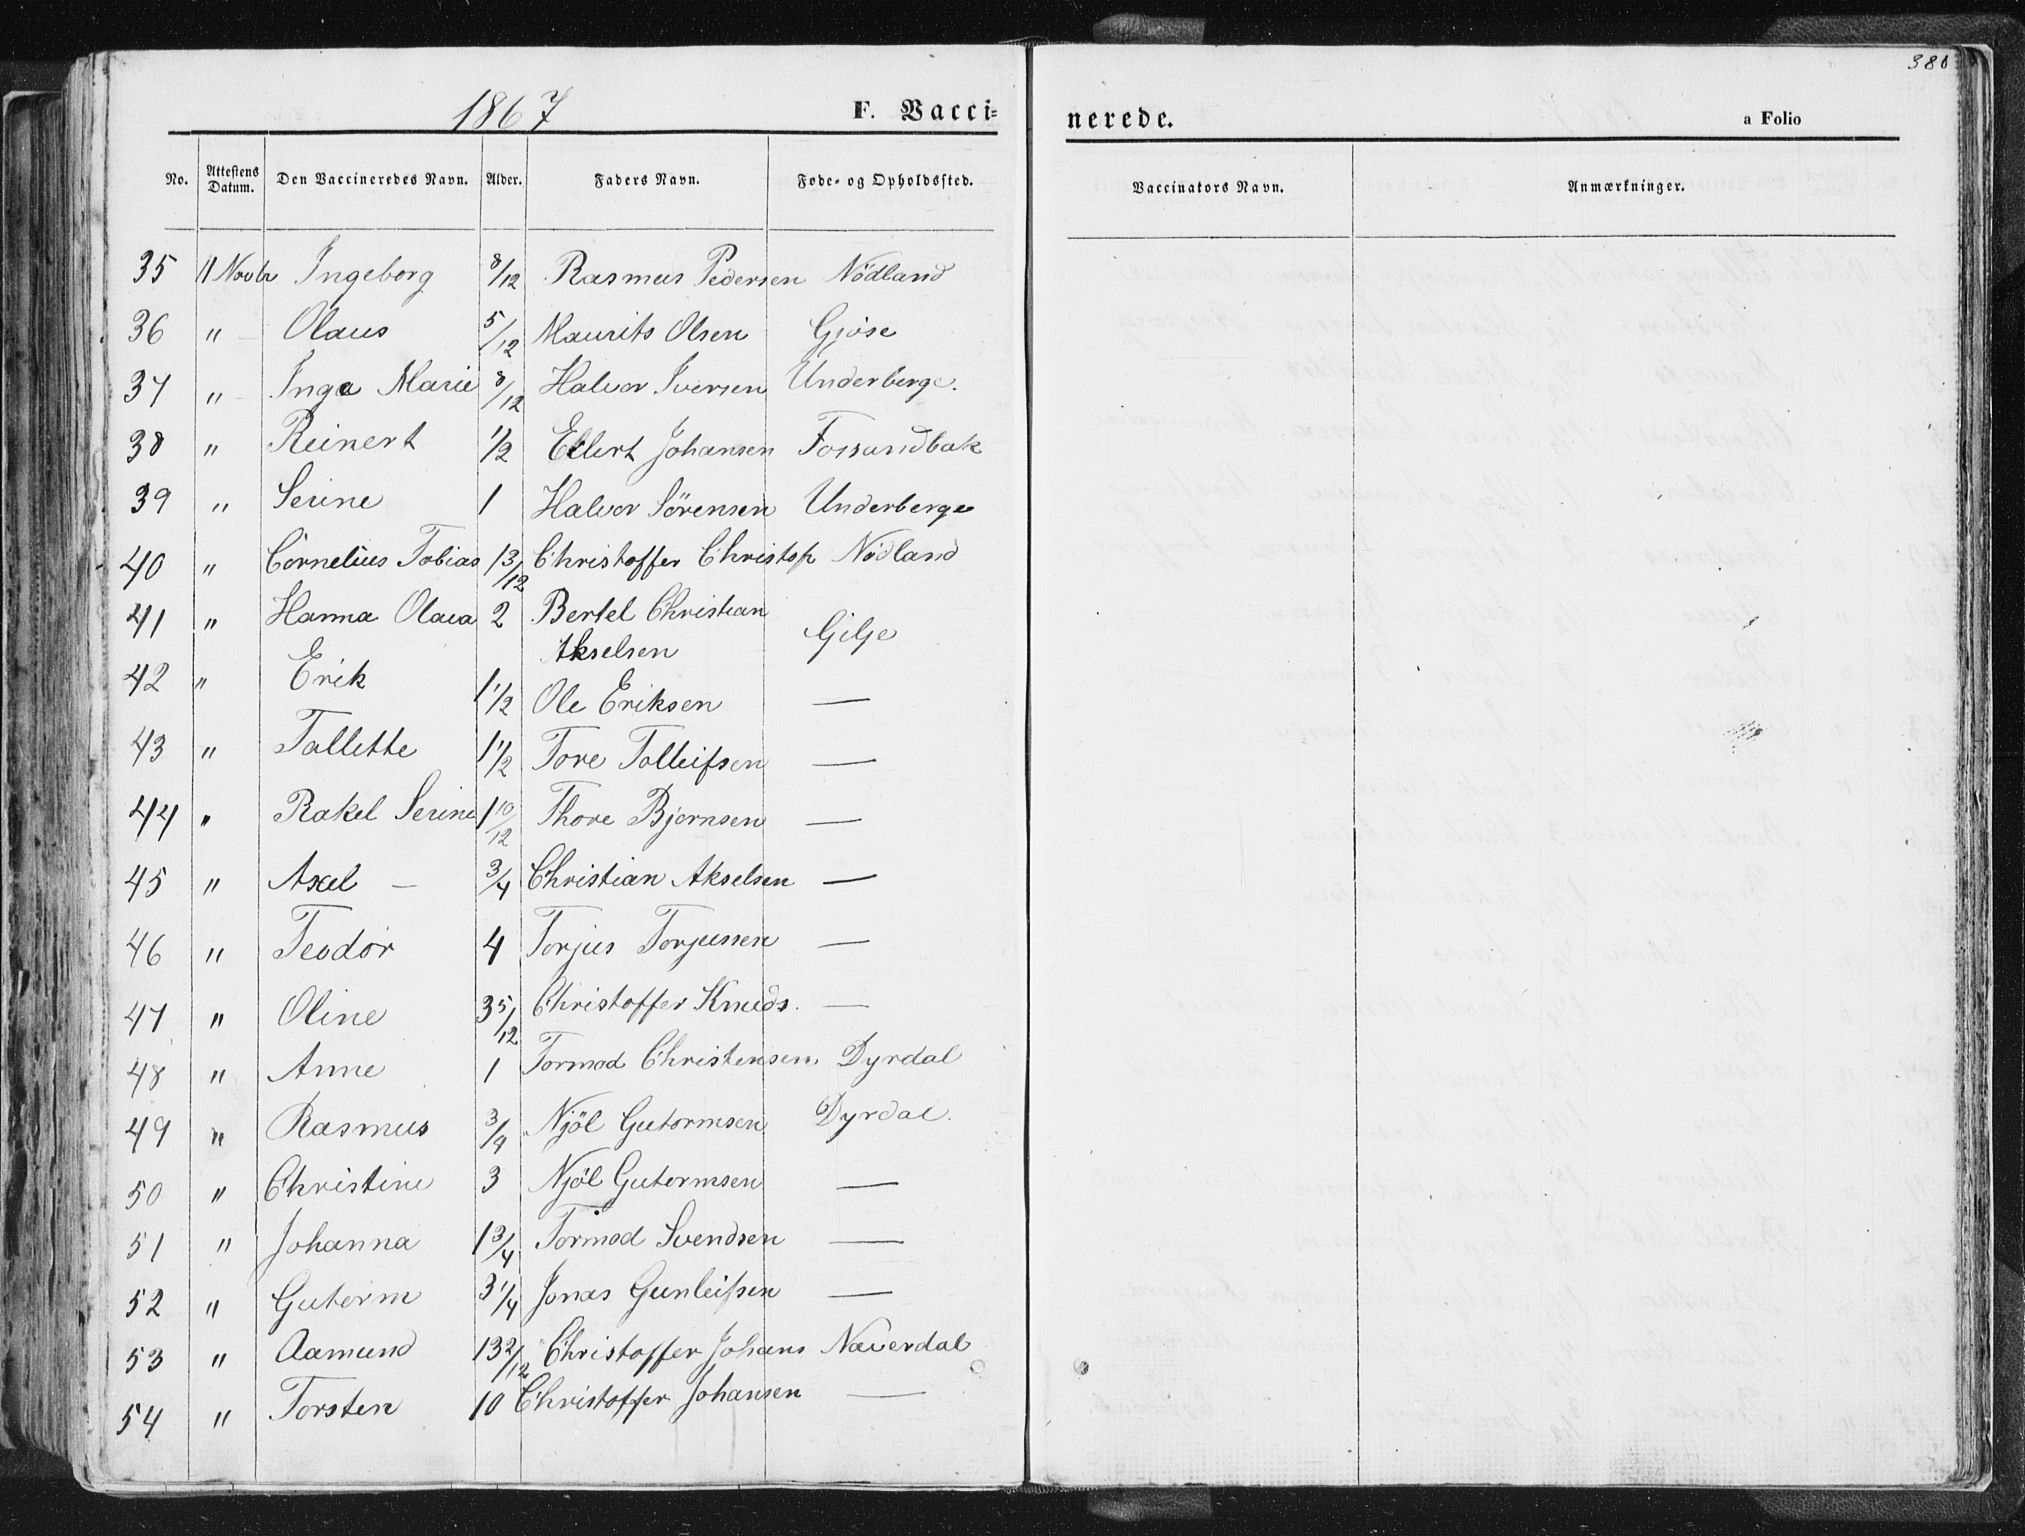 380
1867 F. Vacci-
nerede. a Folio
No. Attestens Datum. Den Vaccineredes Navn. Alder. Faders Navn. Føde- og Opholdssted. Vaccinators Navn. Anmærkninger.
35 11 Novbr Ingeborg 8/12 Rasmus Pedersen Nödland
36 " Olaus 5/12 Maurits Olsen Gjöse
37 " Inga Marie 8/12 Halvor Iversen Underberge.
38 " Reinert 1/2 Ellert Johansen Fossandbak
39 " Serine 1 Halvor Sörensen Underberge
40 " Cornelius Tobias 13/12 Christoffer Christop Nödland
41 " Hanna Olava 2 Bertel Christian
Akselsen Gilje
42 " Erik 1 1/2 Ole Eriksen —
43 " Tallette 1 1/2 Tore Tolleifsen —
44 " Rakel Serine 1 10/12 Thore Bjornsen —
45 " Axel — 3/4 Christian Akselsen —
46 " Teodor 4 Torjus Torjussen —
47 " Oline 3 5/12 Christoffer Knuds. —
48 " Anne 1 Tormod Christensen Dyrdal
49 " Rasmus 3/4 Njöl Gutormsen Dyrdal.
50 " Christine 3 Njöl Gutormsen —
51 " Johanna 1 3/4 Tormod Svendsen —
52 " Gutorm 3 1/4 Jonas Gunleifsen —
53 " Aamund 13 2/12 Christoffer Johans Naverdal
54 " Torsten 10 Christoffer Johansen —